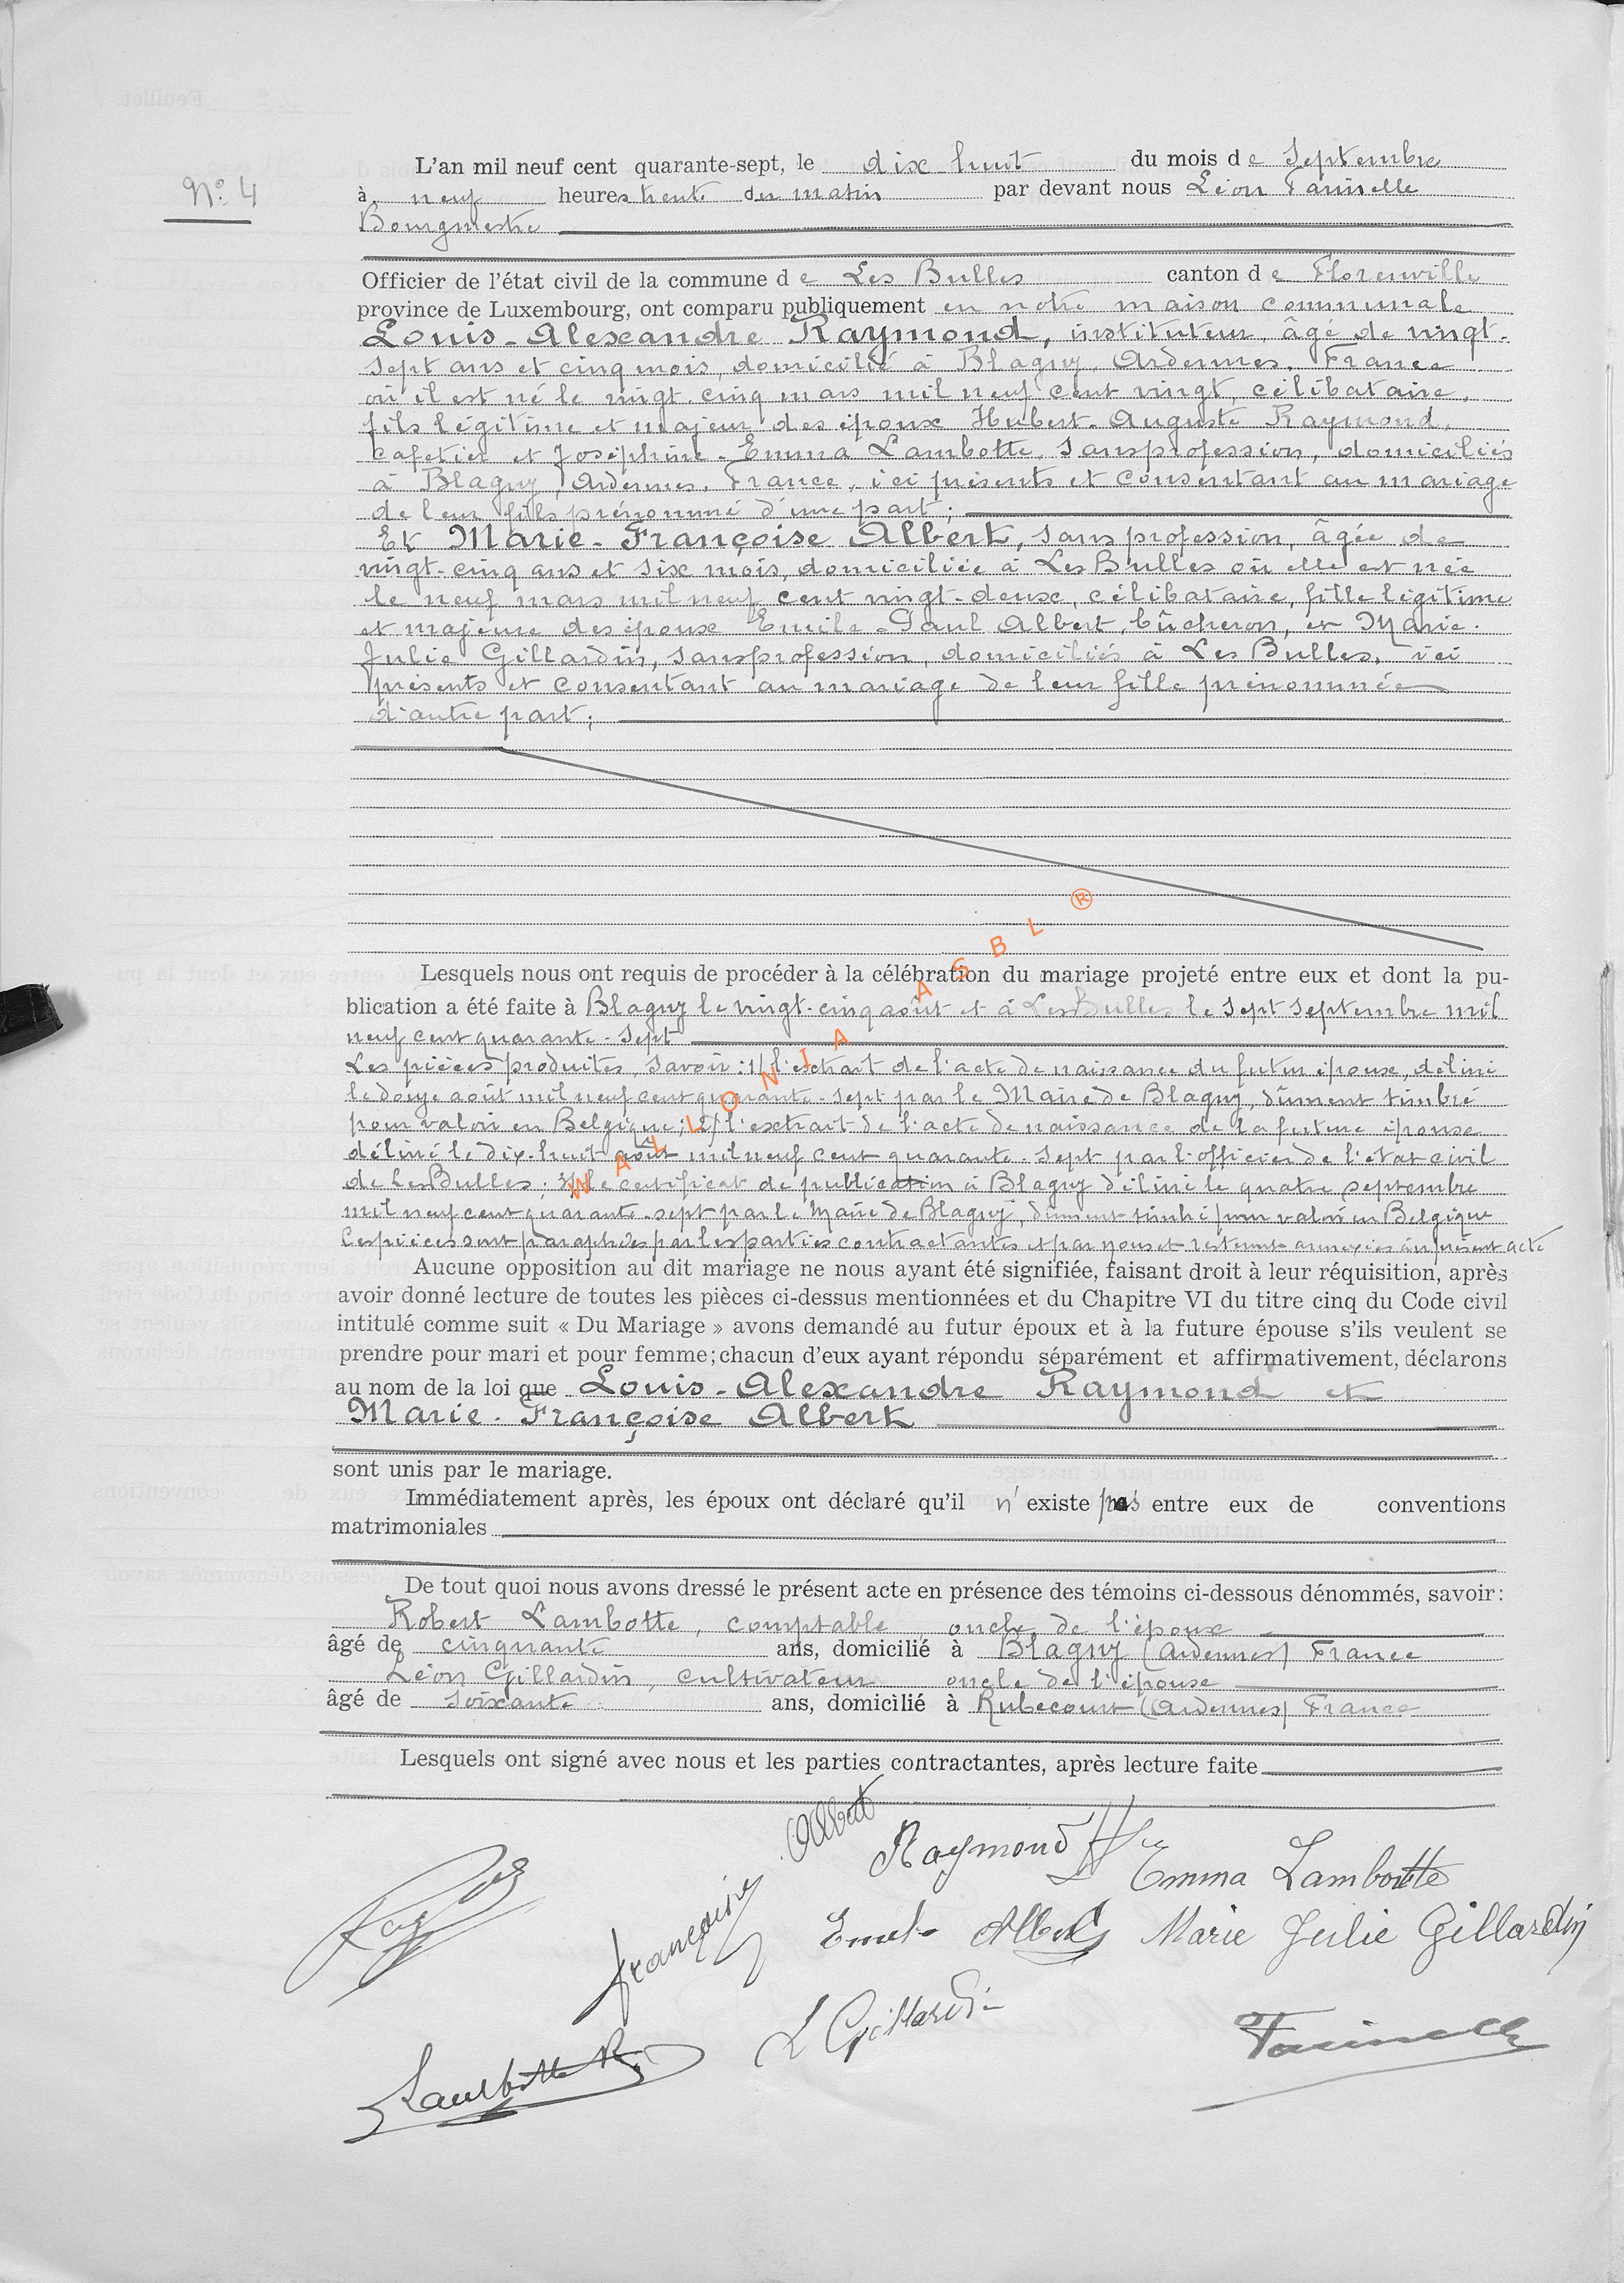 N° 4
L'an mil neuf cent quarante-sept, le dix huit du mois de Septembre
à neuf heures trente du matin par devant nous Léon
Bourgmestre
Officier de l'état civil de la commune de Les Bulles canton de Florenville
province de Luxembourg, ont comparu publiquement en notre maison communale
Louis-Alexandre Raymond, instituteur, âgé de vingt-
sept ans et cinq mois, domicilié à Blagny, Ardennes, France
où il est né le vingt-cinq mars mil neuf cent vingt, célibataire,
fils légitime et majeur des époux Hubert-Auguste Raymond,
cafetier et Joséphine-Emma Lambotte, sans profession, domiciliés
à Blagny, Ardennes, France, ici présents et consentant au mariage
de leur fils prénommé d'une part;
Et Marie-Françoise Albert, sans profession, âgée de
vingt-cinq ans et six mois, domiciliée à Les Bulles où elle est née
le neuf mars mil neuf cent vingt-deux, célibataire, fille légitime
et majeure des époux Emile-Paul Albert, bûcheron, et Marie-
Julie Gillardin, sans profession, domiciliés à Les Bulles, ici
présents et consentant au mariage de leur fille prénommée
d'autre part;
Lesquels nous ont requis de procéder à la célébration du mariage projeté entre eux et dont la pu-
blication a été faite à Blagny le vingt-cinq août et à Les Bulles le sept septembre mil
neuf cent quarante-sept
Les pièces produites, savoir: 1/ l'extrait de l'acte de naissance du futur époux, délivré
le douze août mil neuf cent quarante-sept par le Maire de Blagny, dûment timbré
pour valoir en Belgique; 2/ l'extrait de l'acte de naissance de la future épouse
délivré le dix-huit août mil neuf cent quarante-sept par l'officier de l'état civil
de Les Bulles; 3/ le certificat de publication à Blagny délivré le quatre septembre
mil neuf cent quarante-sept par le Maire de Blagny, dûment timbré pour valoir en Belgique
Ces pièces sont paraphées par les parties contractantes et par nous et resteront annexées au présent acte
Aucune opposition au dit mariage ne nous ayant été signifiée, faisant droit à leur réquisition, après
avoir donné lecture de toutes les pièces ci-dessus mentionnées et du Chapitre VI du titre cinq du Code civil
intitulé comme suit « Du Mariage » avons demandé au futur époux et à la future épouse s'ils veulent se
prendre pour mari et pour femme; chacun d'eux ayant répondu séparément et affirmativement, déclarons
au nom de la loi que Louis-Alexandre Raymond et
Marie-Françoise Albert
sont unis par le mariage.
Immédiatement après, les époux ont déclaré qu'il n'existe pas entre eux de conventions
matrimoniales
De tout quoi nous avons dressé le présent acte en présence des témoins ci-dessous dénommés, savoir:
Robert Lambotte, comptable, oncle de l'époux
âgé de cinquante ans, domicilié à Blagny (Ardennes) France
Léon Gillardin, cultivateur oncle de l'épouse
âgé de soixante ans, domicilié à Rubecourt (Ardennes) France
Lesquels ont signé avec nous et les parties contractantes, après lecture faite
Françoise Albert
Raymond
Emma Lambotte
Emile Albert Marie Julie Gillardin
Lambotte R
L Gillardin
WALLONIA ASBL ®